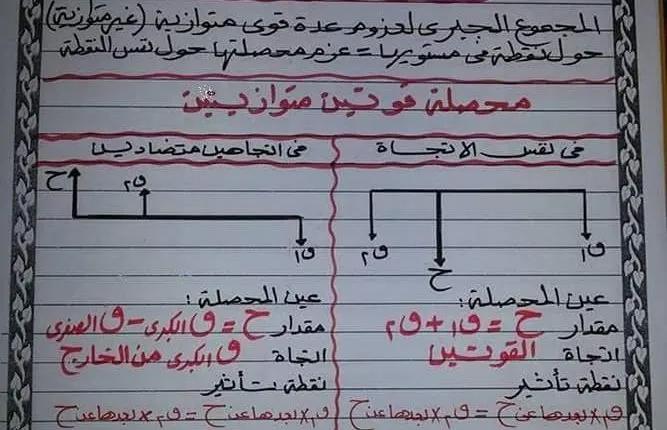 المجموع الجبرى لعزوم عدة قوى متوازية (غير متزنة)
حول نقطة فى مستويها = عزم محصلتها حول نفس النقطة
محصلة قوتين متوازيتين
فى نفس الاتجاة
ق١
ق٢
ح
عين المحصلة:
مقدار ح = ق١ + ق٢
اتجاة القوتين
نقطة تأثير
ق١ × بعدها عن ح = ق٢ × بعدها عن ح
فى اتجاهين متضادين
ح
ق٢
ق١
عين المحصلة:
مقدار ح = ق الكبرى - ق الصغرى
اتجاة ق الكبرى من الخارج
نقطة تأثير
ق١ × بعدها عن ح = ق٢ × بعدها عن ح